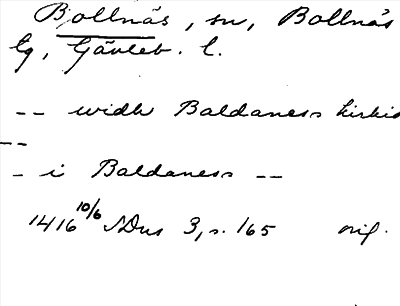 Bollnäs, sn, Bollnäs
lg, Gävleb. l.
-- widh Baldaness kirkio
--
- i Baldaness --
1416 10/6 SDns 3, s. 165 orig.